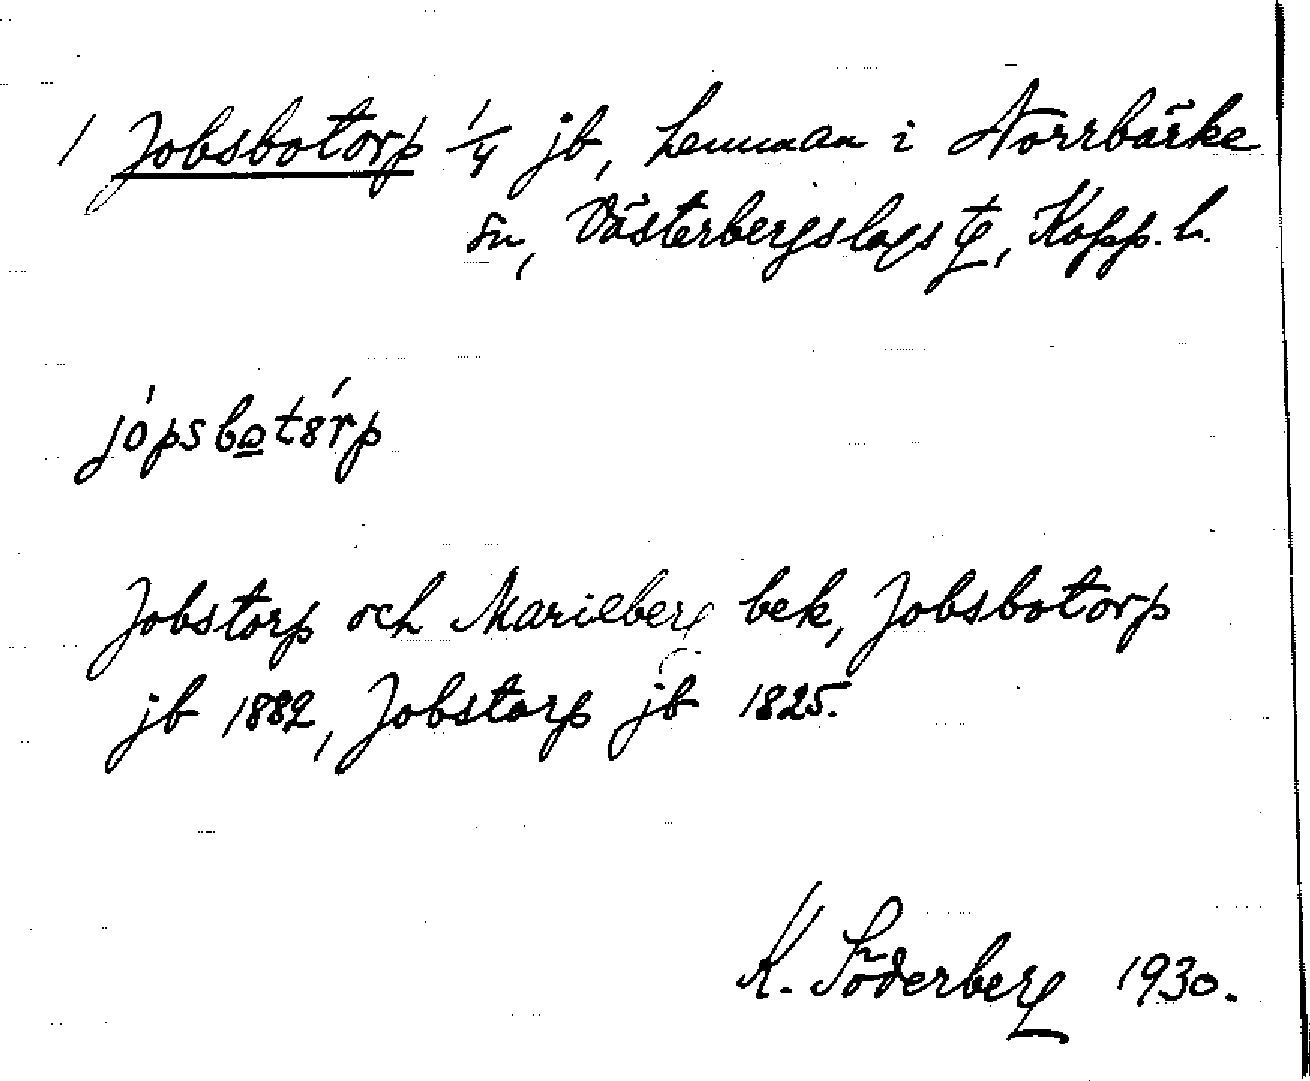 / Jobsbotorp 1/4 jb, hemman i Norrbärke
sn, Västerbergslags tg, Kopp. l.
jópsbotórp
Jobstorp och Marieberg bek, Jobsbotorp
jb 1882, Jobstorp jb 1825.
K. Söderberg 1930.